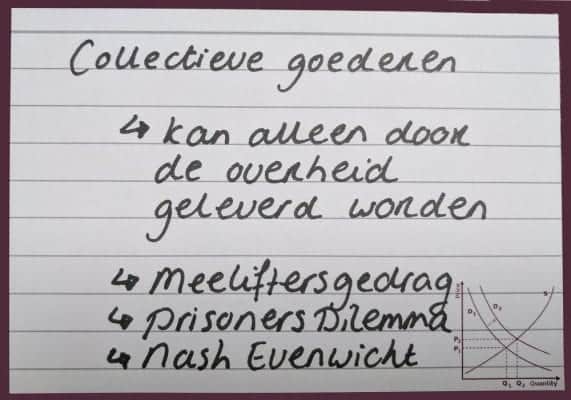 Collectieve goederen
↳ kan alleen door
de overheid
geleverd worden
↳ Meeliftersgedrag
↳ Prisoners Dilemma
↳ Nash Evenwicht
Price
S
D1
D2
P2
P1
Q1 Q2 Quantity